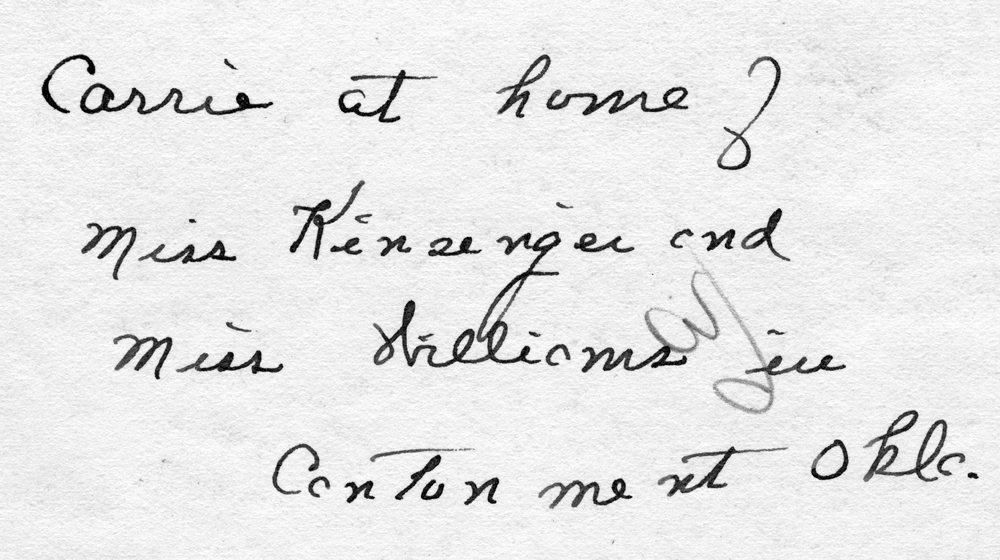 Carrie at home of
Miss Kinsenger and
Miss Williams in
Cantonment Okla.